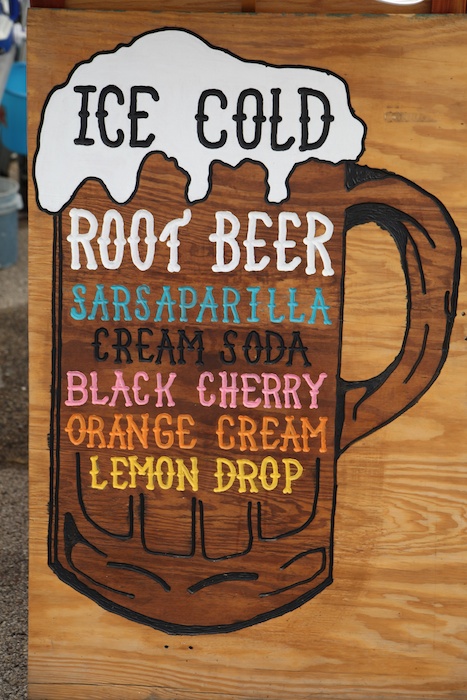 ICE COLD
ROOT BEER
SARSAPARILLA
CREAM SODA
BLACK CHERRY
ORANGE CREAM
LEMON DROP